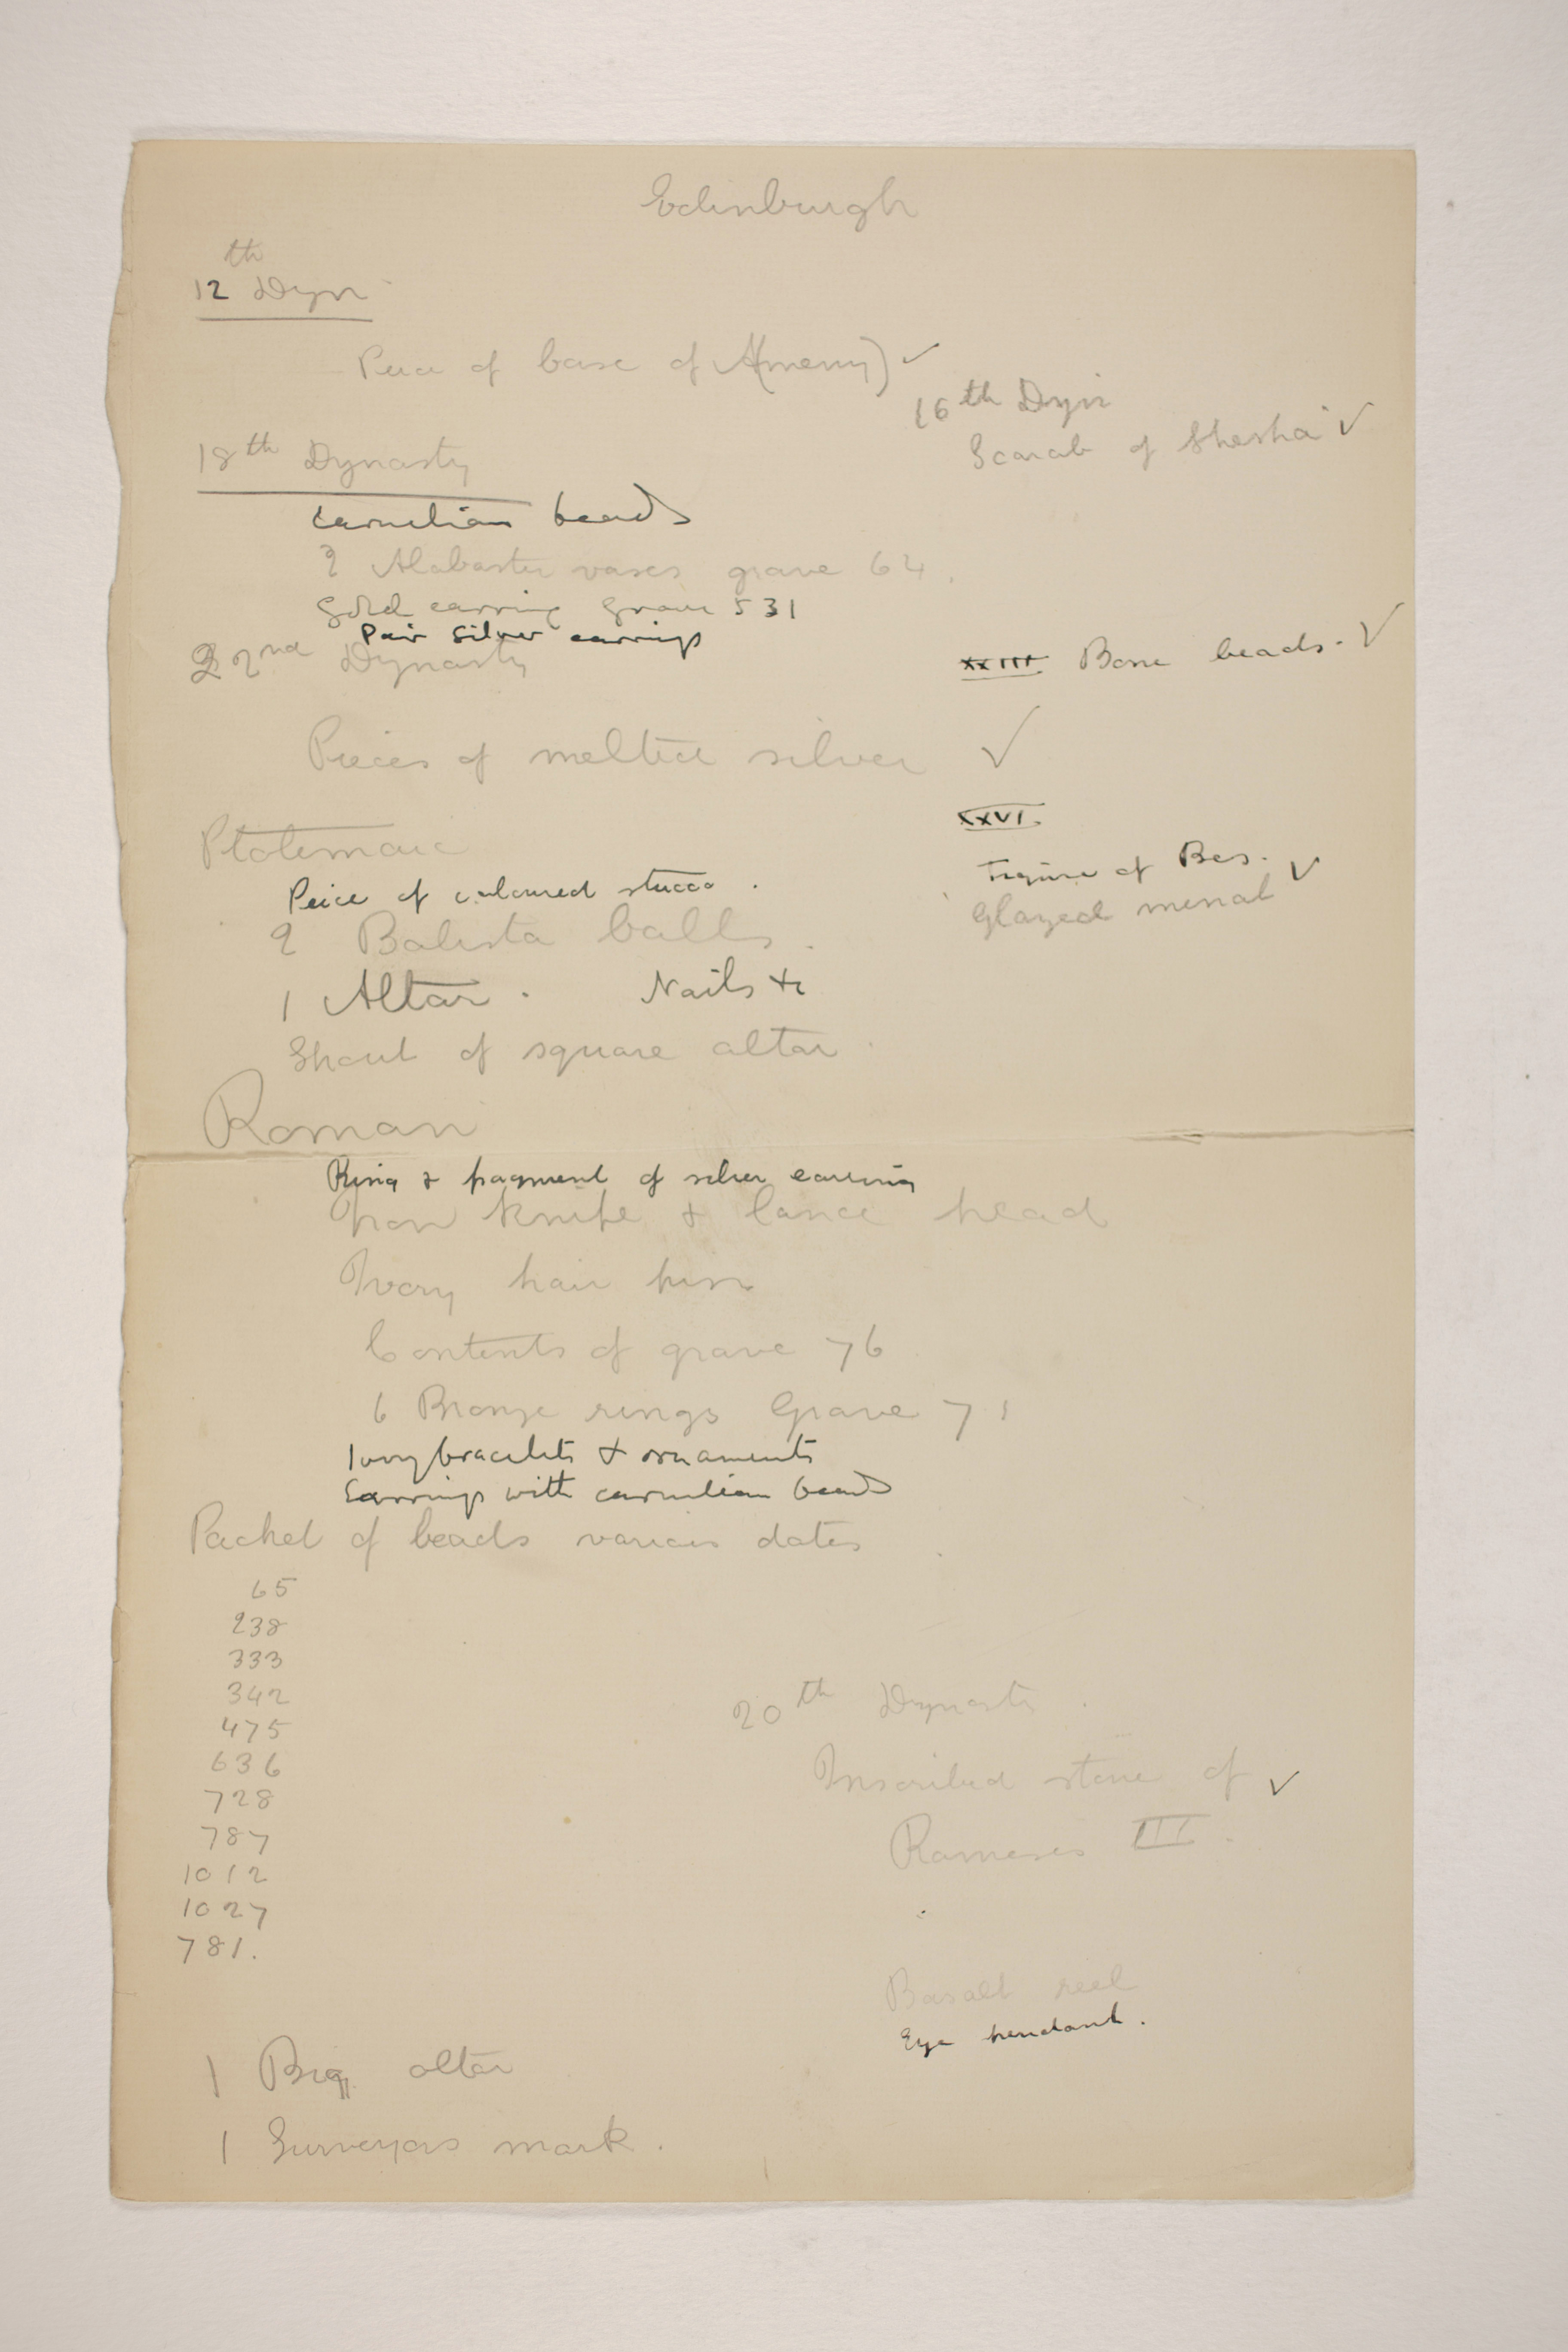 Edinburgh
12th Dyn
Peice of base of A(meny) ✓
16th Dyn
Scarab of Shesha ✓
18th Dynasty
Carnelian beads
2 Alabaster vases grave 64.
Gold earring Grave 531
Pair Silver earrings
22nd Dynasty
XXIII Bone beads. ✓
Pieces of melted silver ✓
Ptolemaic
XXVI.
Peice of coloured stucco.
Figure of Bes. ✓
Glazed menat
2 Balista balls.
1 Altar. Nails &c
Shaft of square altar.
Roman
Ring & fragment of silver earring
Iron Knife & lance head
Ivory hair pin
Contents of grave 76
6 Bronze rings Grave 71
Ivory bracelets & ornaments
Earrings with carnelian beads
Packet of beads various dates
65
238
333
342
475
636
728
787
1012
1027
781.
20th Dynasty.
Inscribed stone of ✓
Rameses III.
Basalt reel
Eye pendant.
1 Big altar
1 Surveyors mark.